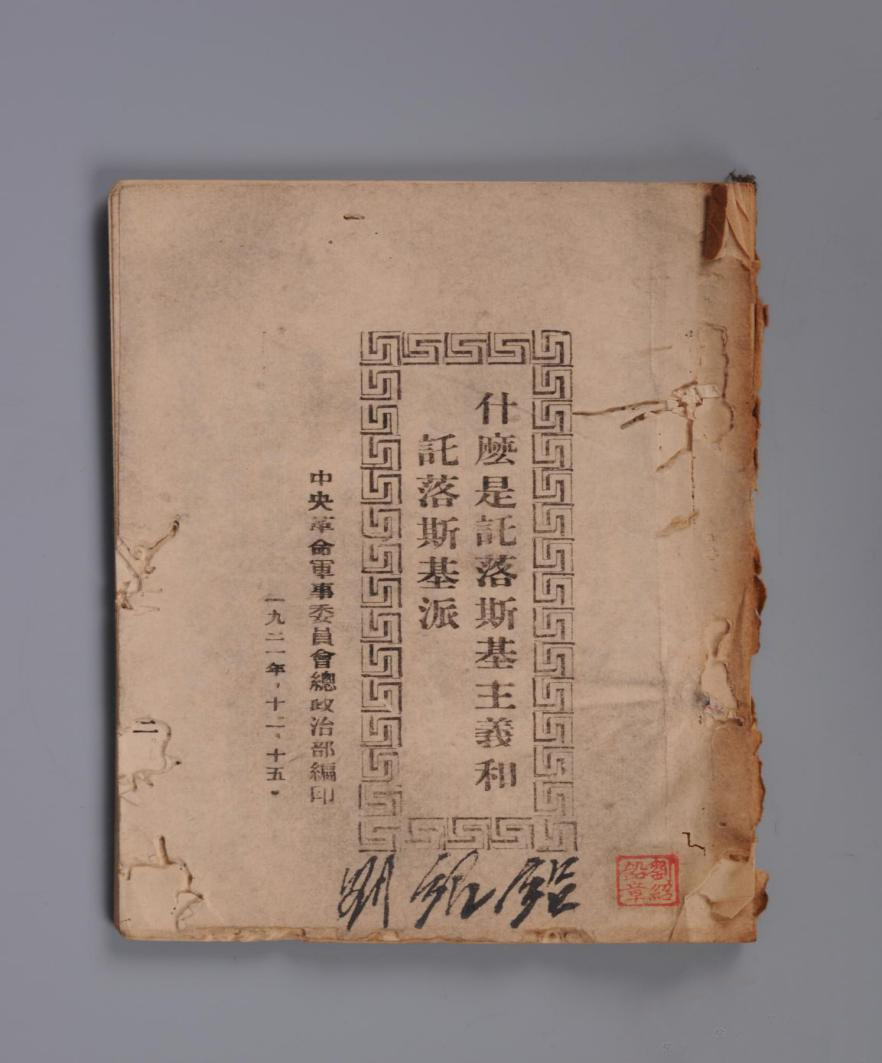 什麼是託落斯基主義和
託落斯基派
中央革命軍事委員會總政治部編印
一九二一年，十二、十五。
劉
劉紹
章
二